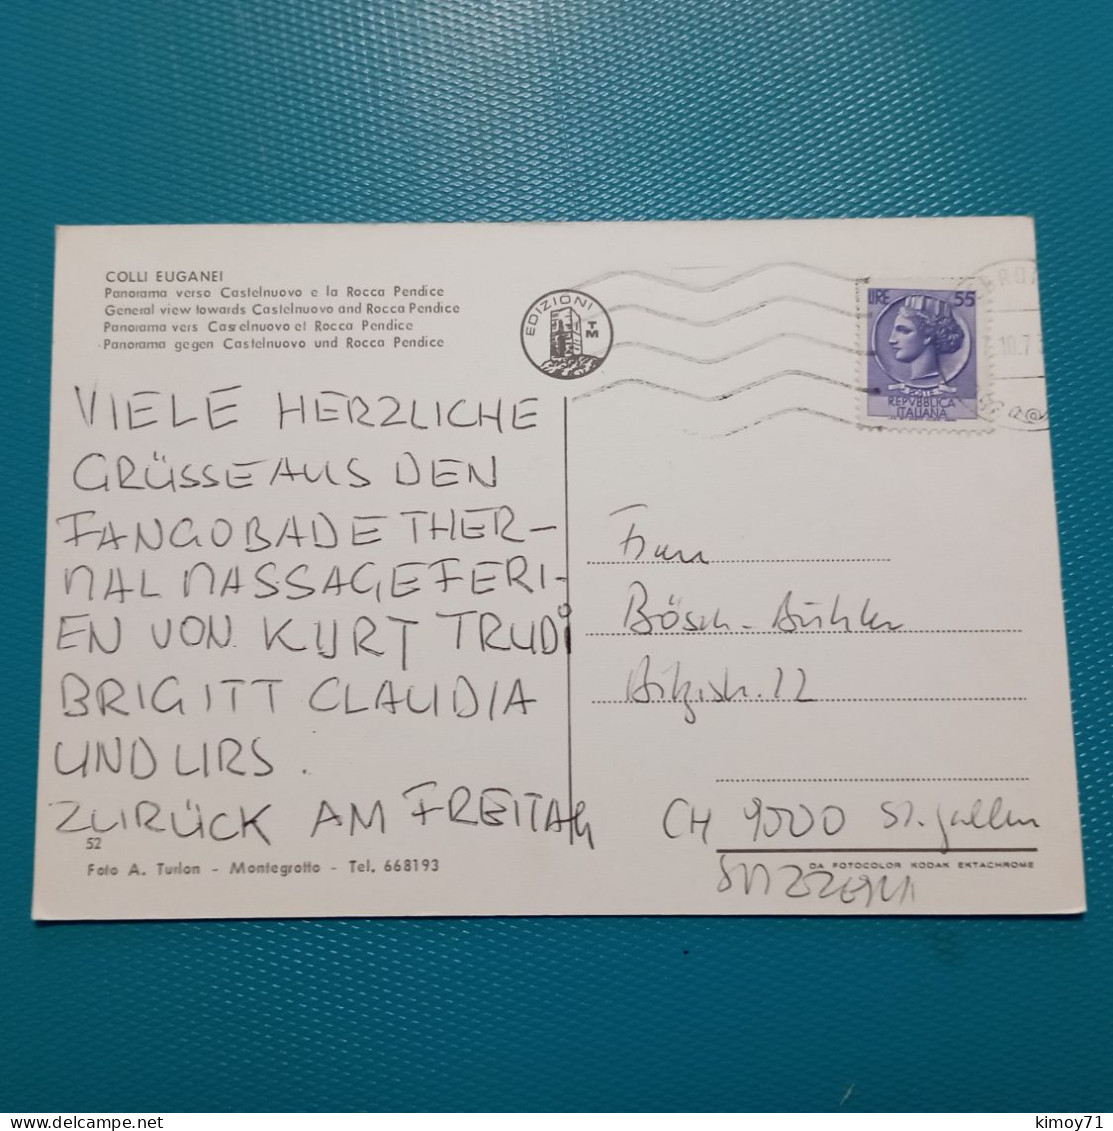 COLLI EUGANEI
Panorama verso Castelnuovo e la Rocca Pendice
General view towards Castelnuovo and Rocca Pendice
Panorama vers Castelnuovo et Rocca Pendice
Panorama gegen Castelnuovo und Rocca Pendice
EDIZIONI
TM
LIRE 55
POSTE
REPVBBLICA
ITALIANA
10.7
VIELE HERZLICHE
GRÜSSE AUS DEN
FANGOBADE THER-
MAL MASSAGEFERI-
EN VON KURT TRUDI
BRIGITT CLAUDIA
UND URS.
ZURÜCK AM FREITAG
Frau
Bösch-Bühler
22
CH 9000 St. Gallen
SVIZZERA
52
Foto A. Turlon - Montegrotto - Tel. 668193
DA FOTOCOLOR KODAK EKTACHROME
kimoy71